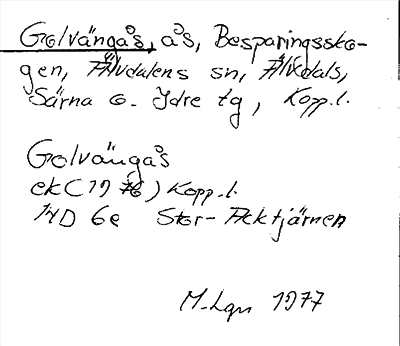 Golvängås, ås, Besparingssko-
gen, Älvdalens sn, Älvdals,
Särna o. Idre tg, Kopp.l.
Golvängås
ek (1976) Kopp.l.
14D 6e Stor-Acktjärnen
M.Lgn 1977